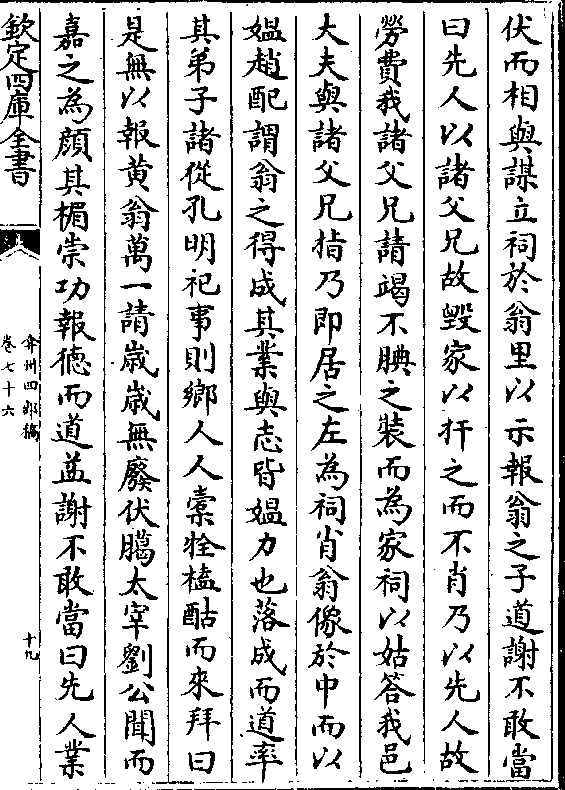 伏而相與謀立祠於翁里以示報翁之子道謝不敢當
曰先人以諸父兄故毁家以扞之而不肖乃以先人故
勞費我諸父兄請竭不腆之裝而為家祠以姑答我邑
大夫與諸父兄指乃即居之左為祠肖翁像於中而以
媪趙配謂翁之得成其業與志皆媪力也落成而道率
其弟子諸從孔明祀事則鄉人人橐牲榼酤而來拜曰
是無以報黄翁萬一請嵗嵗無廢伏臈太宰劉公聞而
嘉之為顔其楣崇功報德而道益謝不敢當曰先人業
欽定四庫全書
弇州四部稿
卷七十六
十九